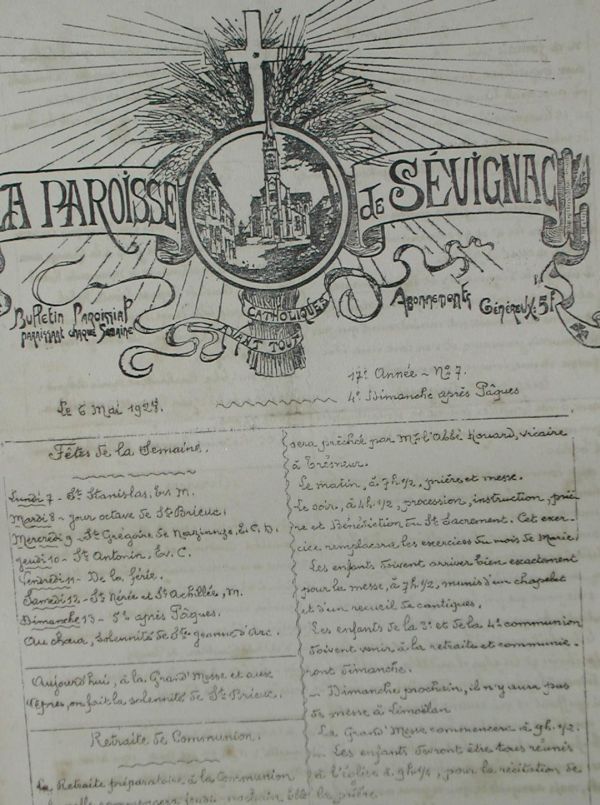 LA PAROISSE de SÉVIGNAC
Bulletin Paroissial
paraissant chaque Semaine
CATHOLIQUES
AVANT TOUT
Abonnements Généreux: 5f
17e Année - No 7.
Le 6 Mai 1928.
4e Dimanche après Pâques
Fêtes de la Semaine.
Lundi 7 - St Stanislas, Ev. M.
Mardi 8 - Jour octave de St Brieuc.
Mercredi 9 - St Grégoire de Nazianze, E. C. D.
Jeudi 10 - St Antonin, Ev. C.
Vendredi 11 - De la férie.
Samedi 12 - St Nérée et St Achillée, M.
Dimanche 13 - 5e après Pâques.
Au chœur, solennité de Ste Jeanne d'Arc.
Aujourd'hui, à la Grand' Messe et aux
Vêpres, on fait la solennité de St Brieuc.
Retraite de Communion.
La Retraite préparatoire à la Communion
commencera jeudi prochain. Elle
sera prêchée par Mr l'Abbé Houard, vicaire
à Trésneur.
Le matin, à 7h 1/2, prières et messe.
Le soir, à 4h 1/2, procession, instruction, priè-
re et Bénédiction du St Sacrement. Cet exer-
cice remplacera les exercices du mois de Marie.
Les enfants doivent arriver bien exactement
pour la messe, à 7h 1/2, munis d'un chapelet
et d'un recueil de cantiques.
Les enfants de la 3e et de la 4e communion
doivent venir à la retraite et communie-
ront dimanche.
- Dimanche prochain, il n'y aura pas
de messe à Limoëlan
La Grand' Messe commencera à 9h. 1/2.
- Les enfants devront être tous réunis
à l'église à 9h 1/4, pour la récitation de
la prière.